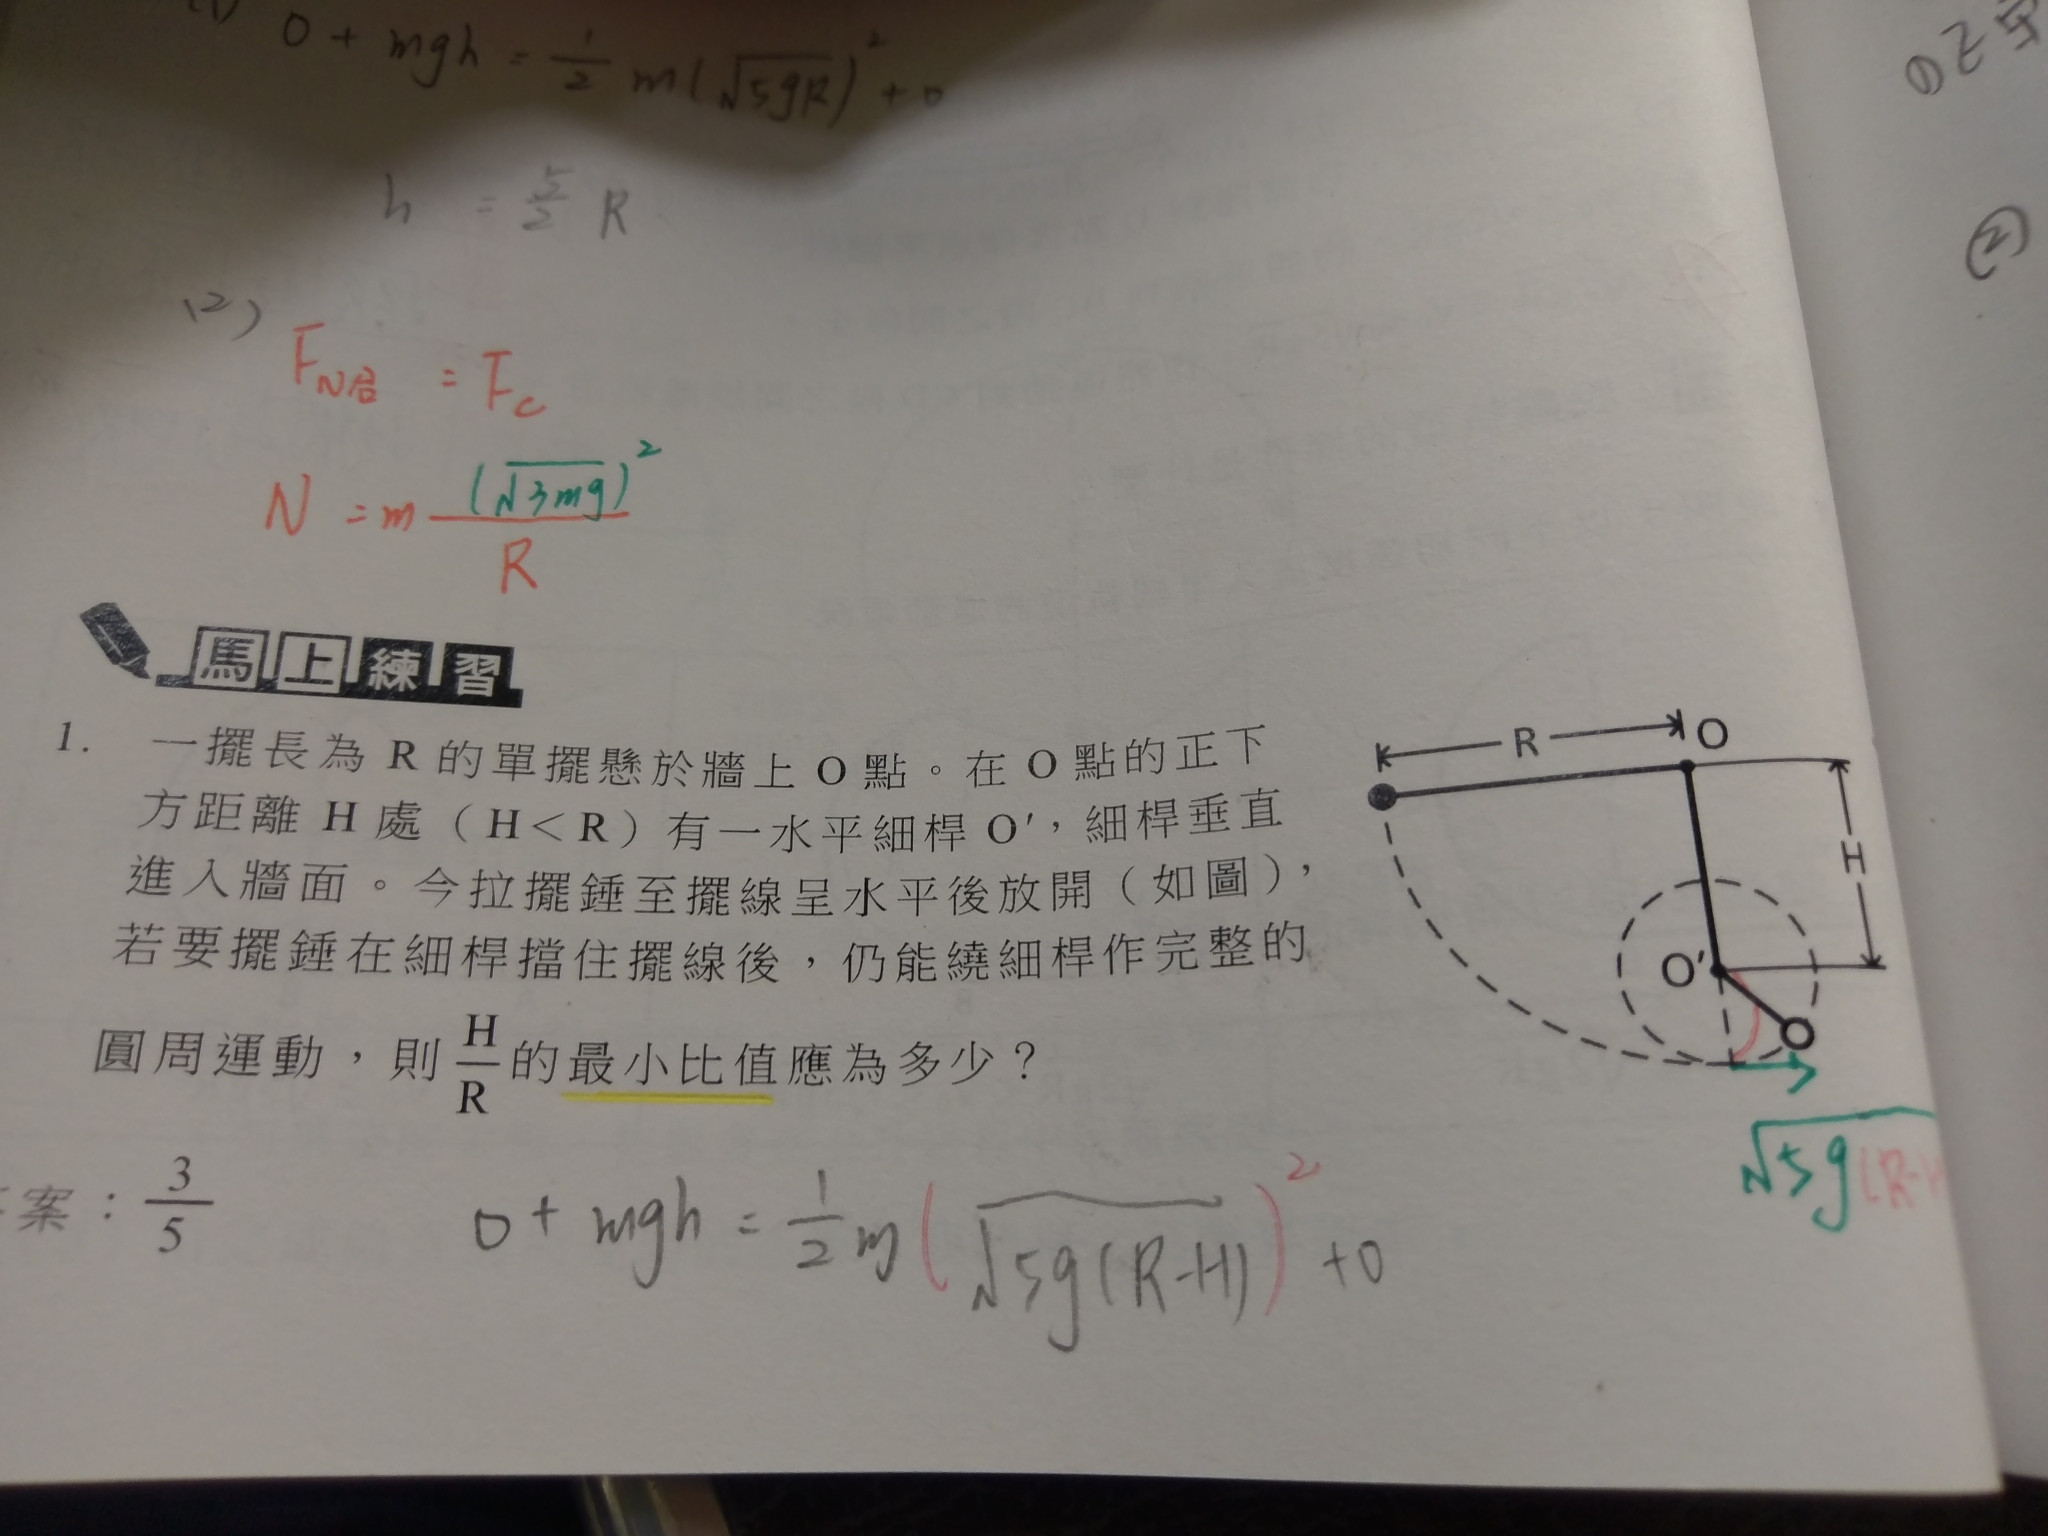 0 + mgh = 1/2 m(√5gR)² + 0
h = 5/2 R
(2)
F_N合 = F_c
N = m (√3mg)² / R
馬上練習
1. 一擺長為 R 的單擺懸於牆上 O 點。在 O 點的正下
方距離 H 處（H＜R）有一水平細桿 O′，細桿垂直
進入牆面。今拉擺錘至擺線呈水平後放開（如圖），
若要擺錘在細桿擋住擺線後，仍能繞細桿作完整的
圓周運動，則 H/R 的最小比值應為多少？
R
O
H
O′
√5g(R-H
案：3/5
0 + mgh = 1/2 m(√5g(R-H))² + 0
(2)